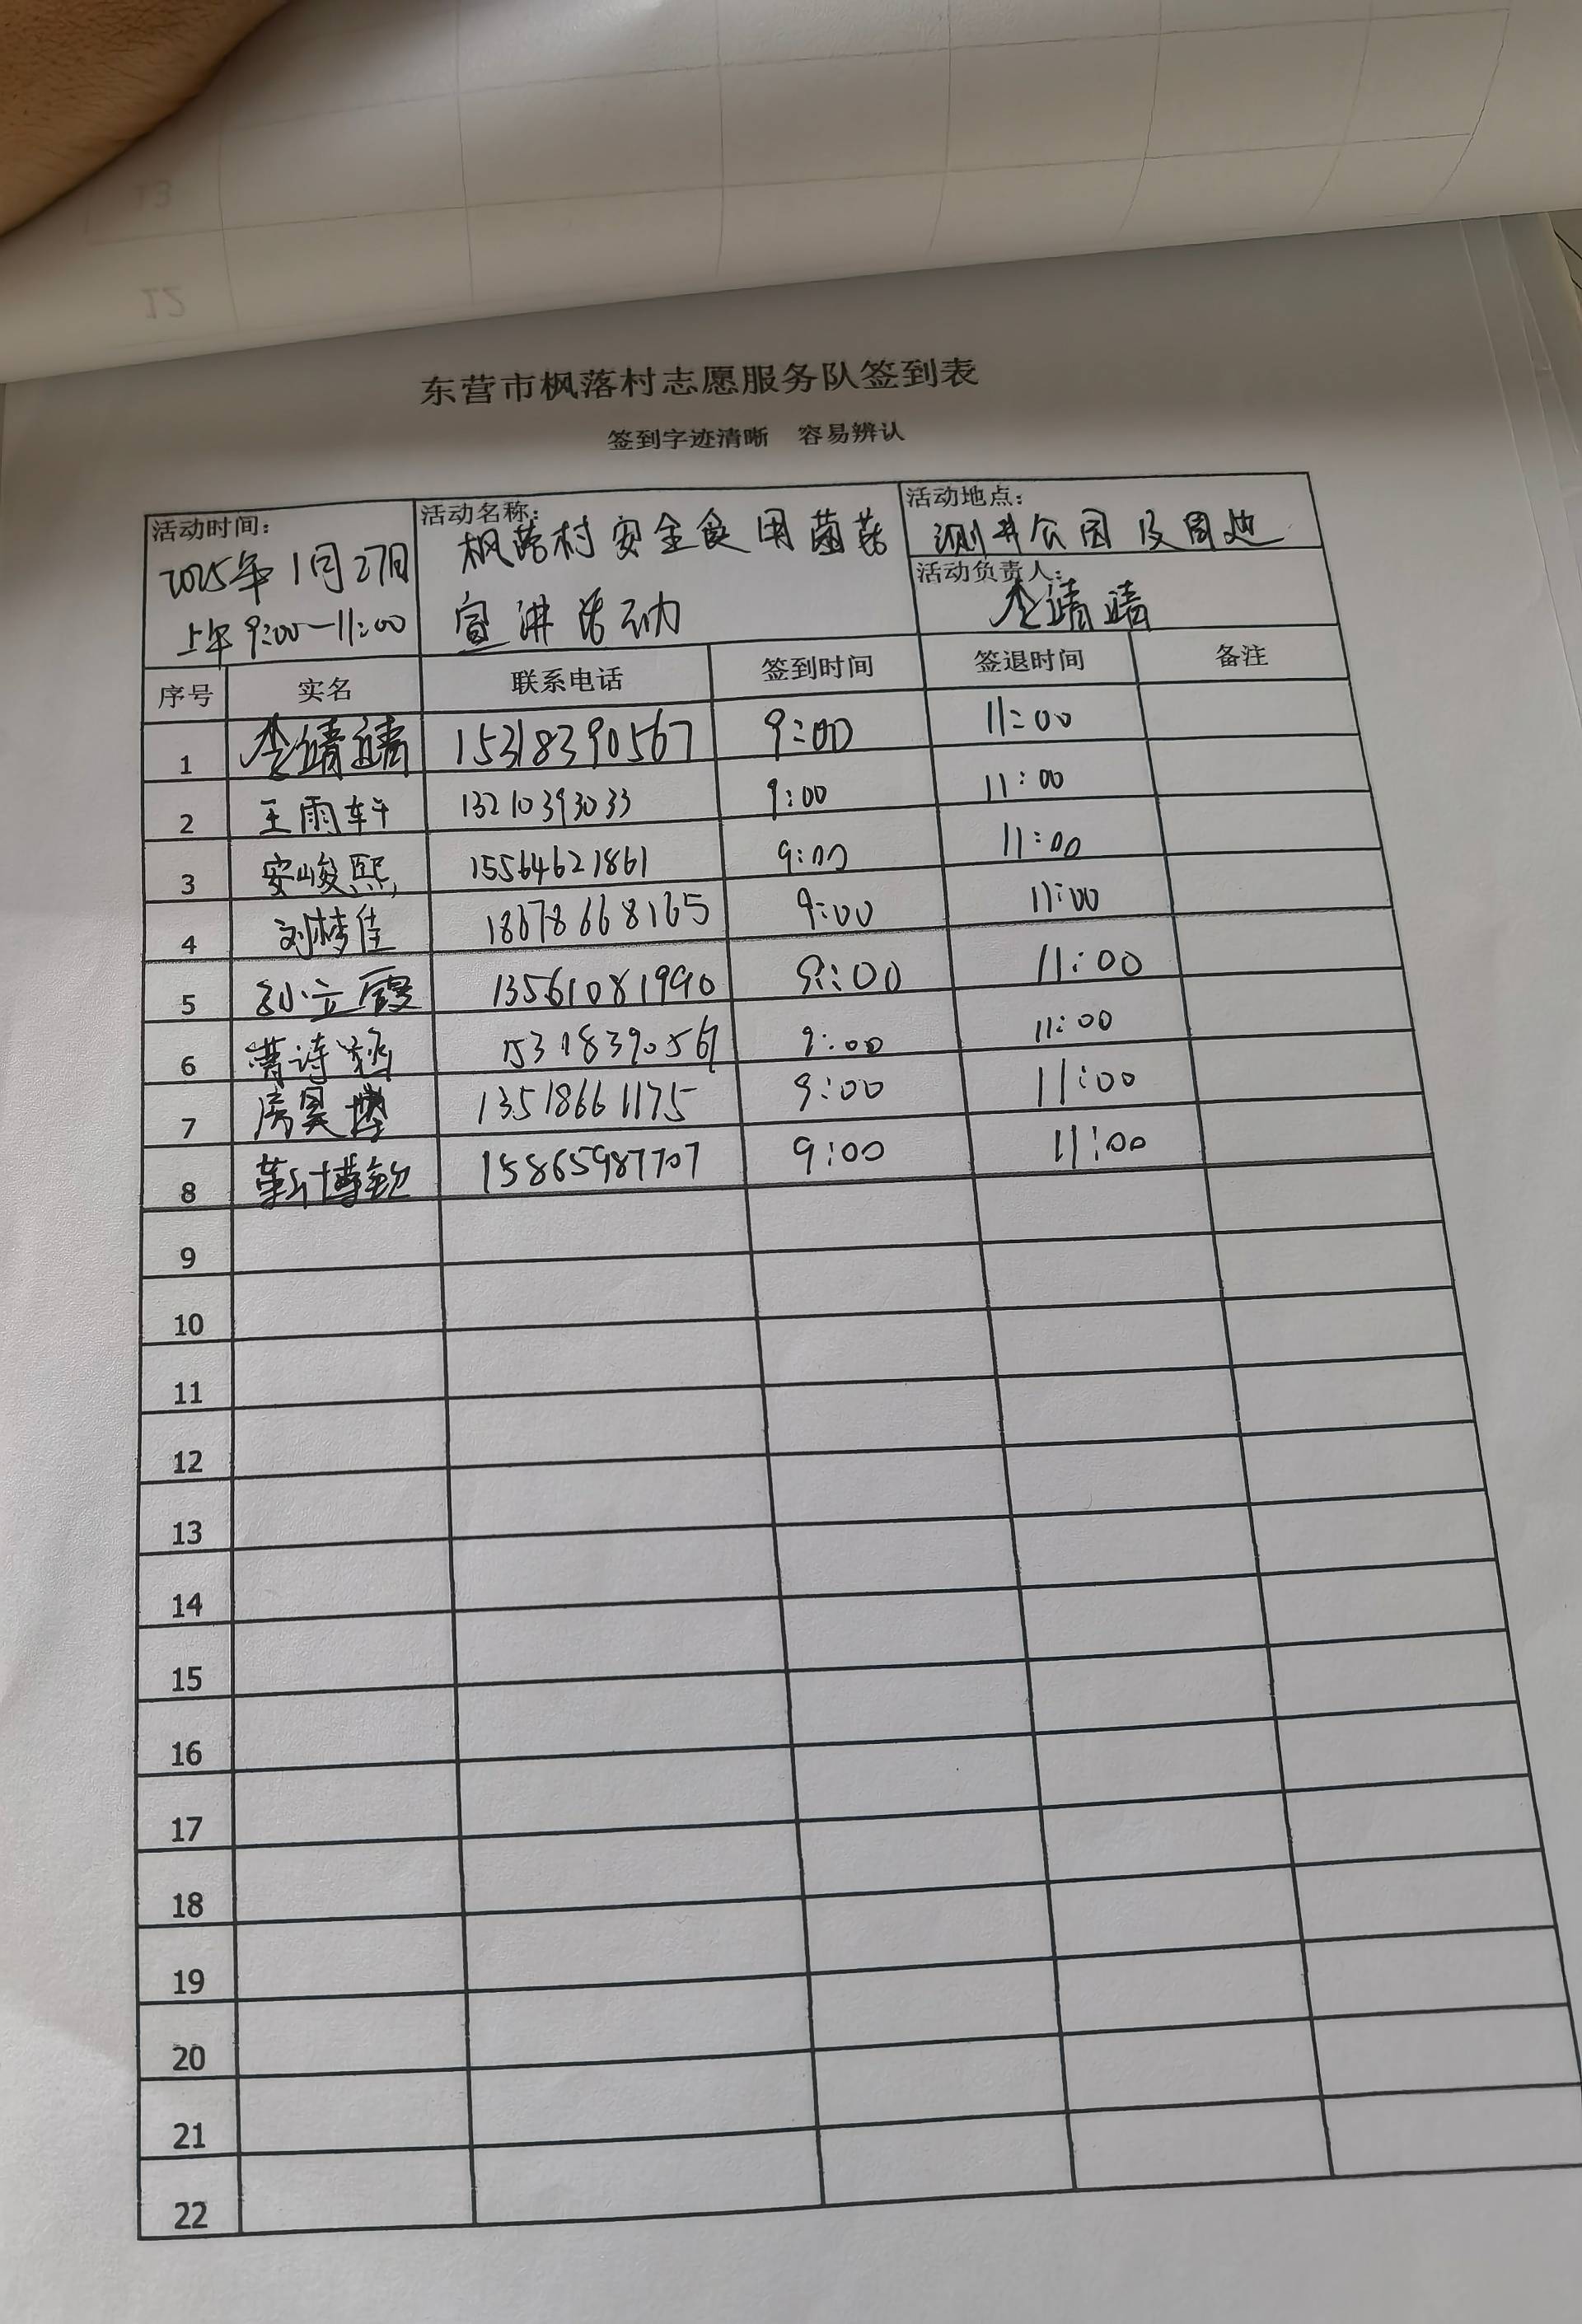 东营市枫落村志愿服务队签到表
签到字迹清晰 容易辨认
活动时间: 2025年1月27日 上午9:00-11:00
活动名称: 枫落村安全食用菌菇宣讲活动
活动地点: 测井公园及周边
活动负责人: 李靖靖
序号 实名 联系电话 签到时间 签退时间 备注
1 李靖靖 15318390567 9:00 11:00
2 王雨轩 13210393033 9:00 11:00
3 安峻熙 15564621861 9:00 11:00
4 刘梦佳 18678668165 9:00 11:00
5 孙立霞 13561081990 9:00 11:00
6 曹诗涵 9:00 11:00
7 房昊 13518661175 9:00 11:00
8 靳博钦 15865987707 9:00 11:00
9
10
11
12
13
14
15
16
17
18
19
20
21
22